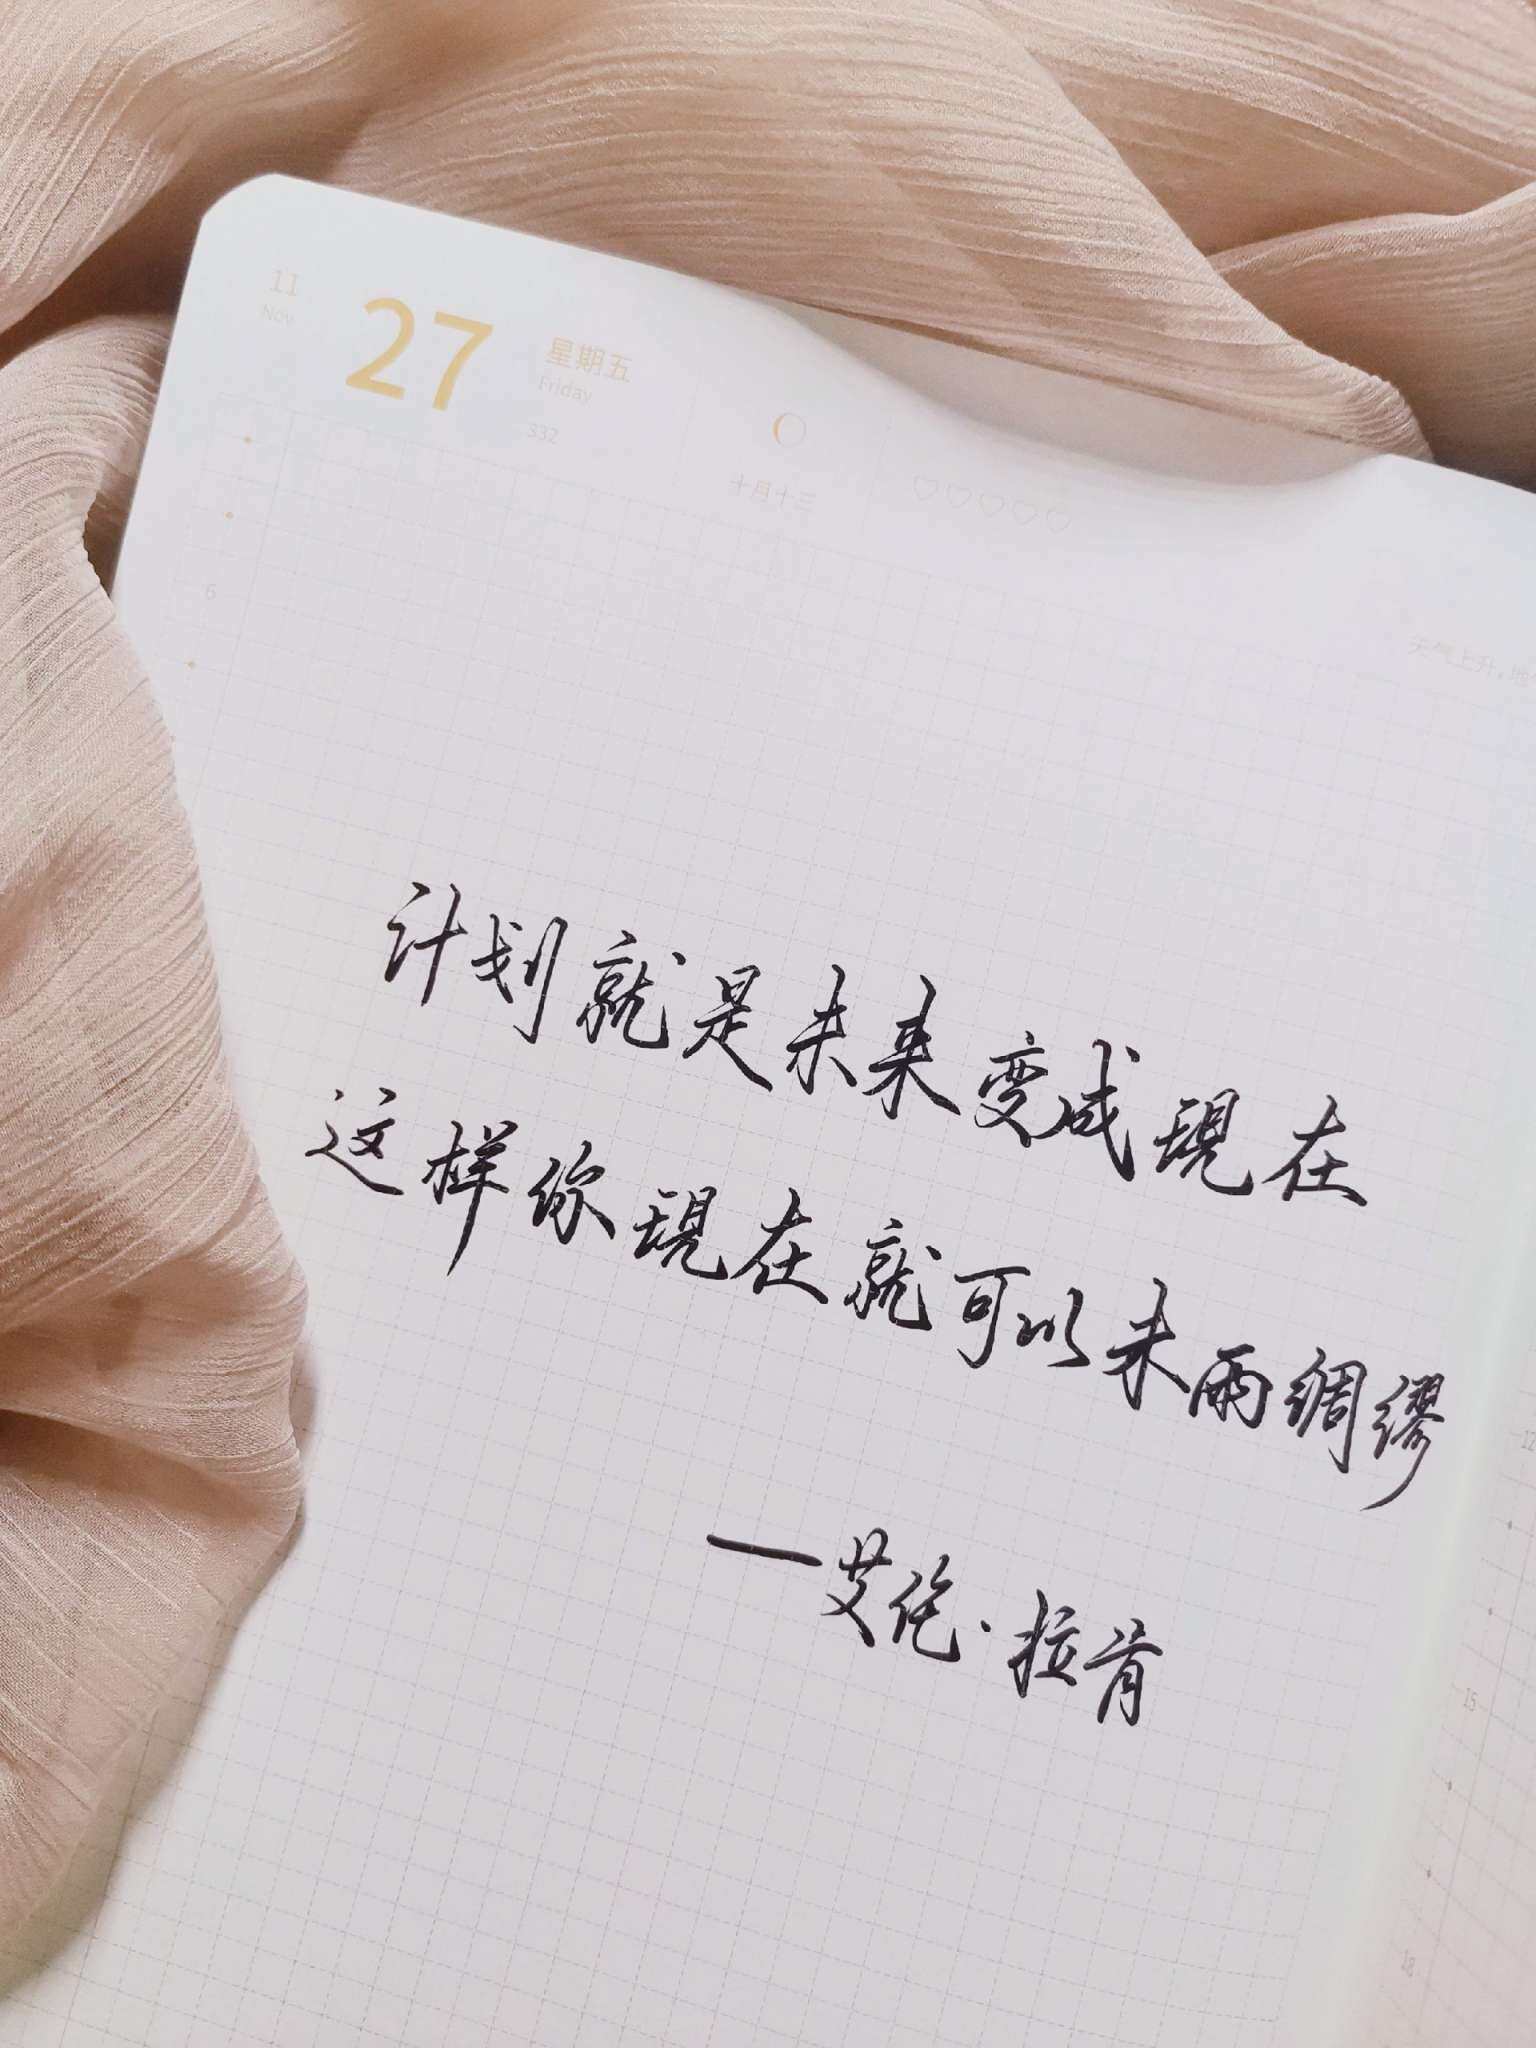 11
Nov
27
星期五
Friday
332
十月十三
天气上升,地
6
计划就是未来变成现在
这样你现在就可以未雨绸缪
—艾伦·拉肯
12
15
18